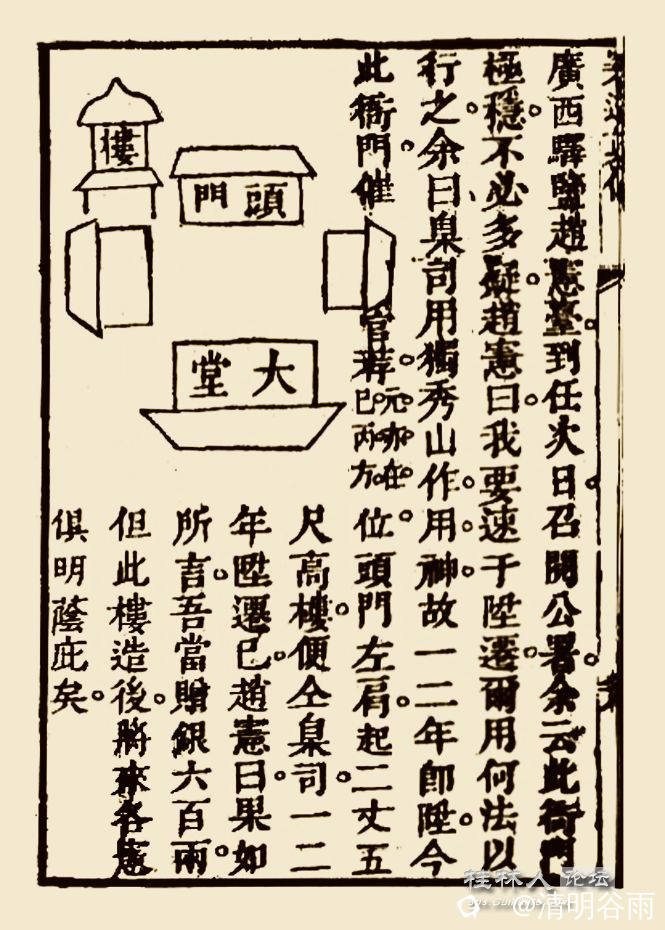 廣西驛鹽趙憲臺。到任次日。召開公署。余云此衙門
極穩。不必多擬。趙憲曰。我要速于陞遷。爾用何法以
行之。余曰臬司用獨秀山作用神。故一二年即陞。今
此衙門催官
元亦在
巳丙方
位。頭門左肩。起二丈五
尺高樓。便仝臬司。一二
年陞遷。已趙憲曰。果如
所言。吾當贈銀六百兩。
但此樓造後。將來各憲
俱明蔭庇矣。
樓
頭門
大堂
桂林人论坛
@清明谷雨